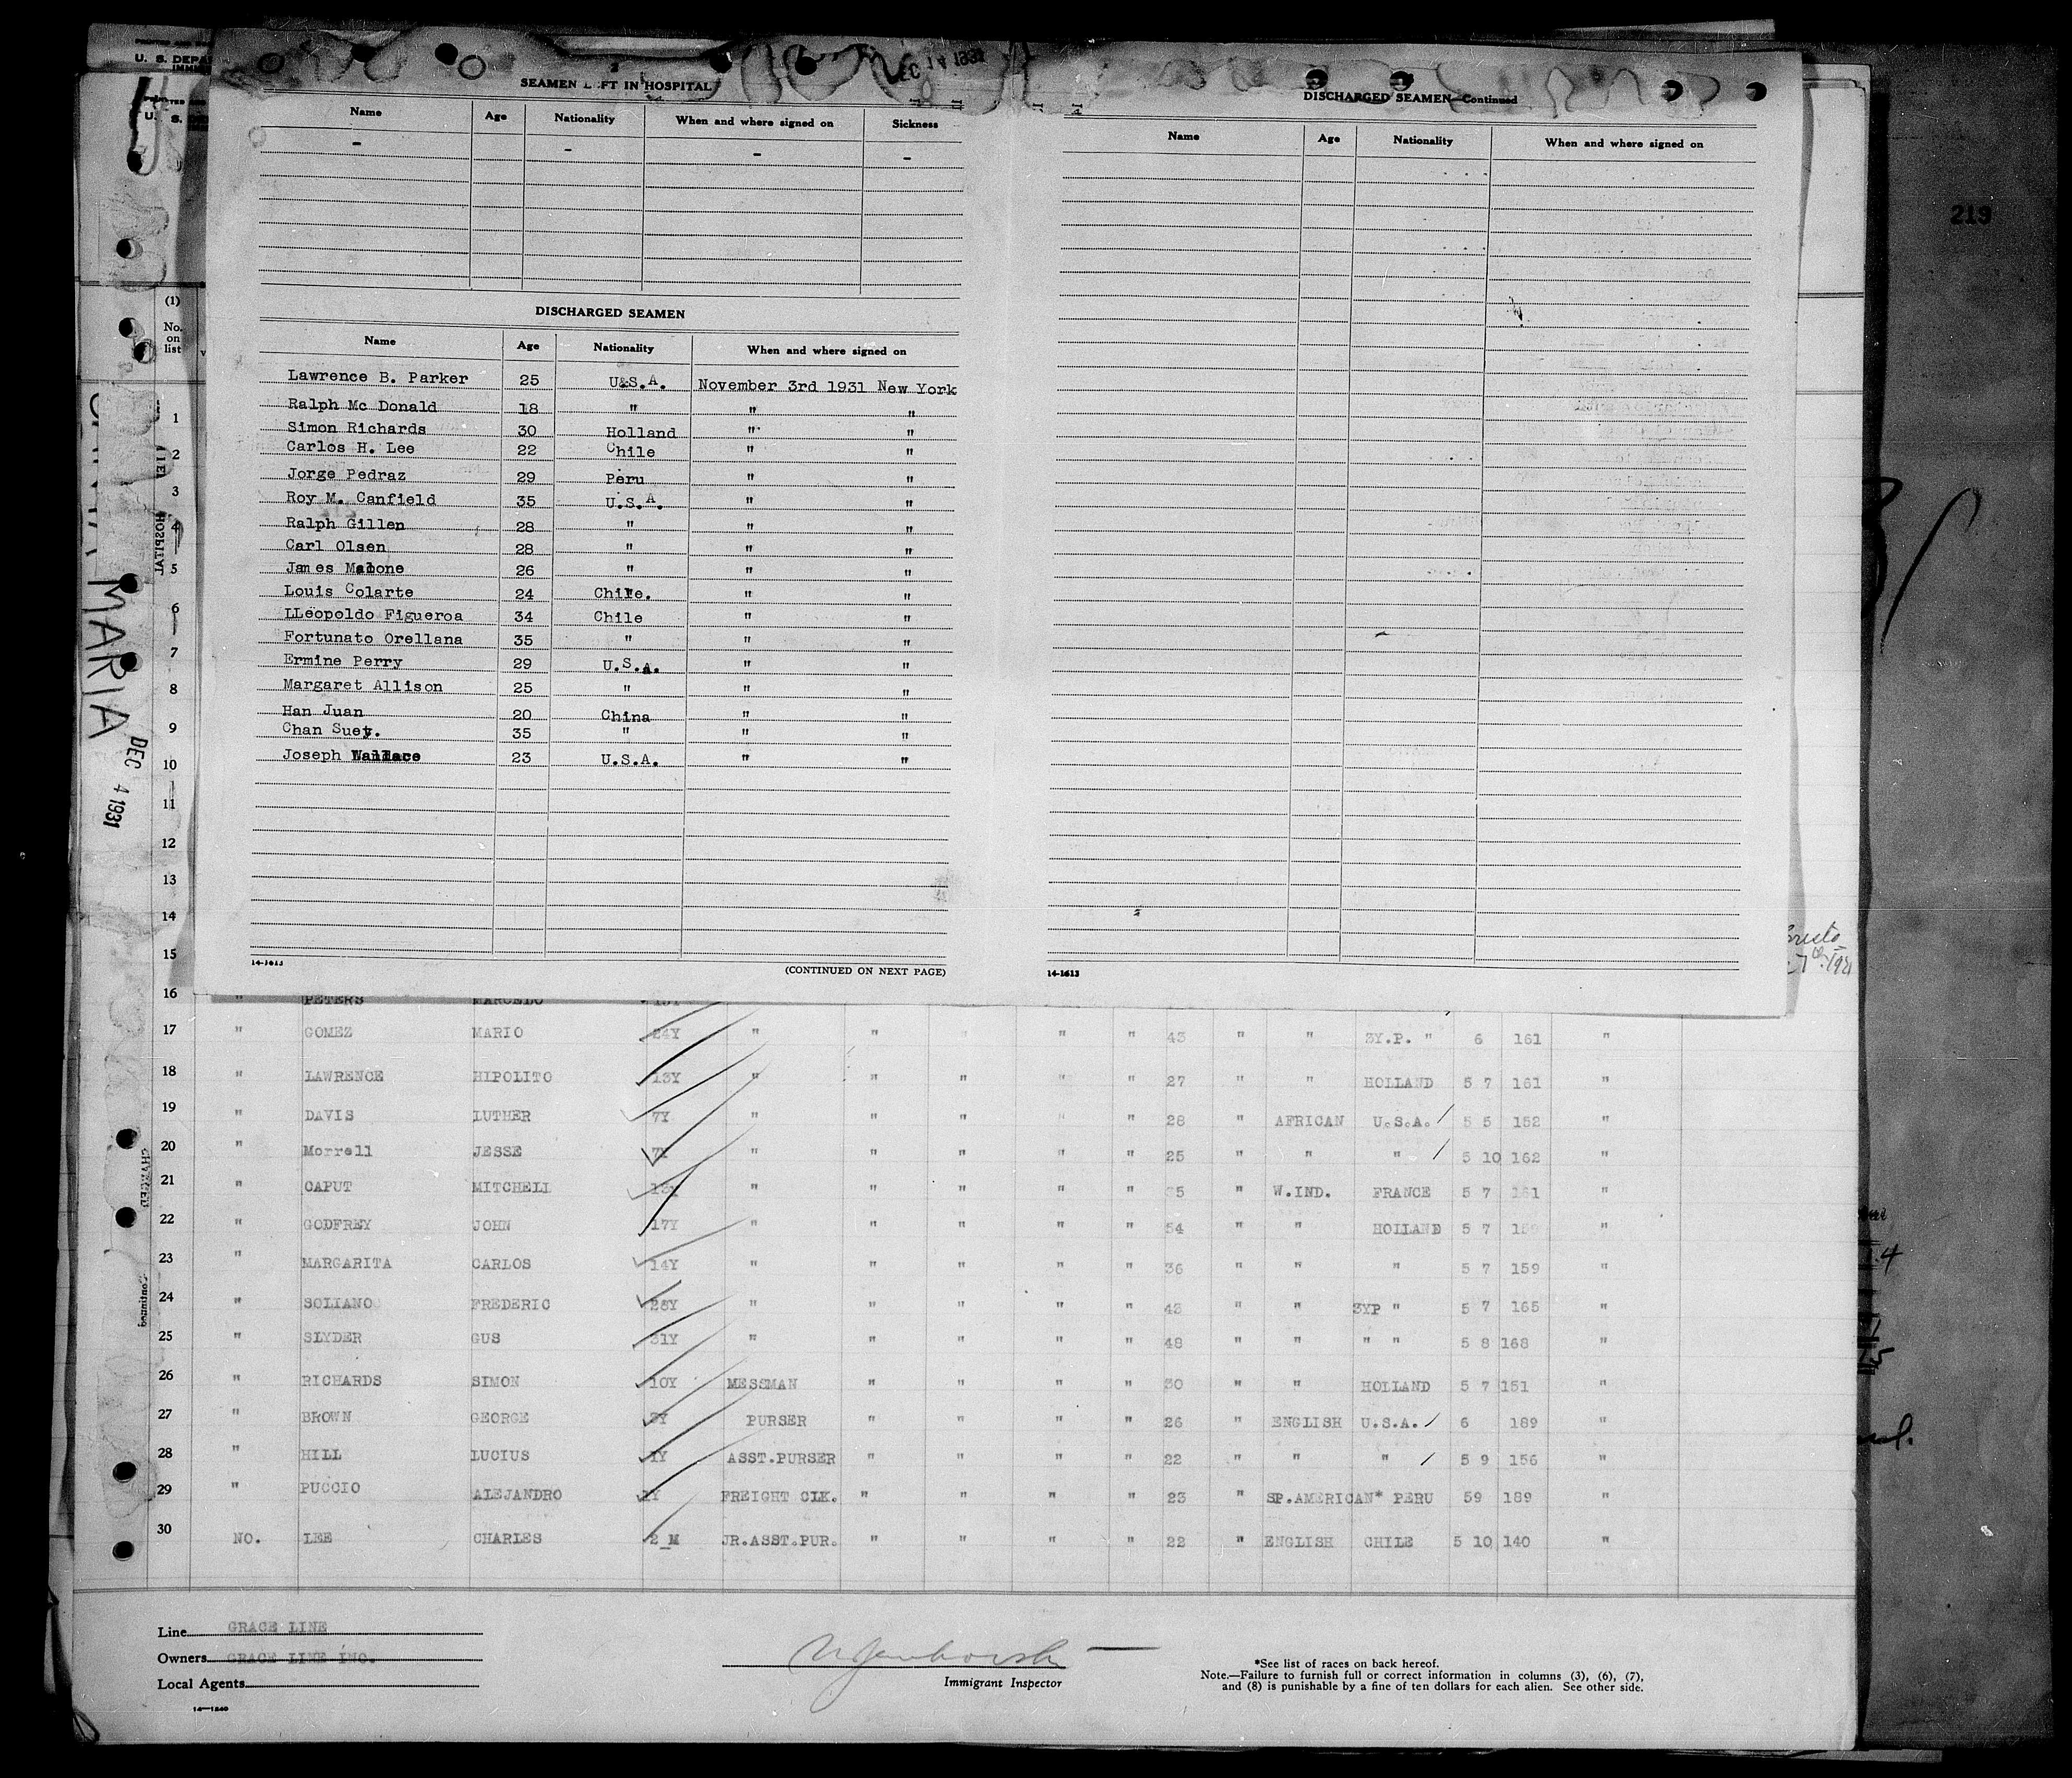 SEAMEN L FT IN HOSPITAL
Name Age Nationality When and where signed on Sickness
- - - -
DISCHARGED SEAMEN
Name Age Nationality When and where signed on
Lawrence B. Parker 25 U&S.A. November 3rd 1931 New York
Ralph Mc Donald 18 " " "
Simon Richards 30 Holland " "
Carlos H. Lee 22 Chile " "
Jorge Pedraz 29 Peru " "
Roy M. Canfield 35 U.S.A. " "
Ralph Gillen 28 " " "
Carl Olsen 28 " " "
James Malone 26 " " "
Louis Colarte 24 Chile. " "
LLeopoldo Figueroa 34 Chile " "
Fortunato Orellana 35 " " "
Ermine Perry 29 U.S.A. " "
Margaret Allison 25 " " "
Han Juan 20 China " "
Chan Suey. 35 " " "
Joseph Wallace 23 U.S.A. " "
14-1613
(CONTINUED ON NEXT PAGE)
DISCHARGED SEAMEN—Continued
Name Age Nationality When and where signed on
14-1613
219
U. S. DEPA
U. S.
(1)
No. on list
MARIA
DEC 4 1931
1
2
3
4
5
6
7
8
9
10
11
12
13
14
15
16 " PETERS MARCEDO
17 " GOMEZ MARIO 24Y " " " " 43 " " 3Y.P. " 6 161 "
18 " LAWRENCE HIPOLITO 13Y " " " " " 27 " " HOLLAND 5 7 161 "
19 " DAVIS LUTHER 7Y " " " " 28 " AFRICAN U.S.A. 5 5 152 "
20 " Morrell JESSE 7Y " " " " " 25 " " " 5 10 162 "
21 " CAPUT MITCHELL 18Y " " " " " 35 " W.IND. FRANCE 5 7 161 "
22 " GODFREY JOHN 17Y " " " " " 54 " " HOLLAND 5 7 159 "
23 " MARGARITA CARLOS 14Y " " " " " 36 " " " 5 7 159 "
24 " SOLIANO FREDERIC 28Y " " " " " 43 " " 3YP " 5 7 165 "
25 " SLYDER GUS 31Y " " " " " 48 " " " " 5 8 168 "
26 " RICHARDS SIMON 10Y MESSMAN " " " " 30 " " HOLLAND 5 7 151 "
27 " BROWN GEORGE 3Y PURSER " " " " 26 " ENGLISH U.S.A. 6 189 "
28 " HILL LUCIUS 1Y ASST.PURSER " " " " 22 " " " 5 9 156 "
29 " PUCCIO ALEJANDRO 1Y FREIGHT CLK. " " " " 23 " SP.AMERICAN* PERU 59 189 "
30 NO. LEE CHARLES 2_M JR.ASST.PUR. " " " " 22 " ENGLISH CHILE 5 10 140 "
Line GRACE LINE
Owners GRACE LINE INC.
Local Agents
14—1240
Immigrant Inspector
*See list of races on back hereof.
Note.—Failure to furnish full or correct information in columns (3), (6), (7),
and (8) is punishable by a fine of ten dollars for each alien. See other side.